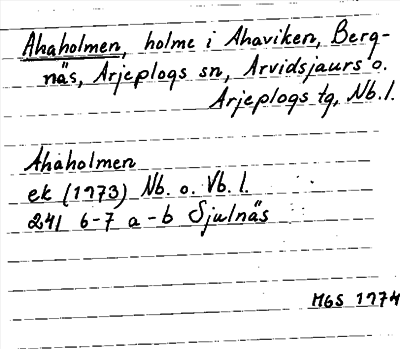 Ahaholmen, holme i Ahaviken, Berg-
näs, Arjeplogs sn, Arvidsjaurs o.
Arjeplogs tg, Nb.l.
Ahaholmen
ek (1973) Nb. o. Vb. l.
241 6-7 a-b Sjulnäs
MGS 1974